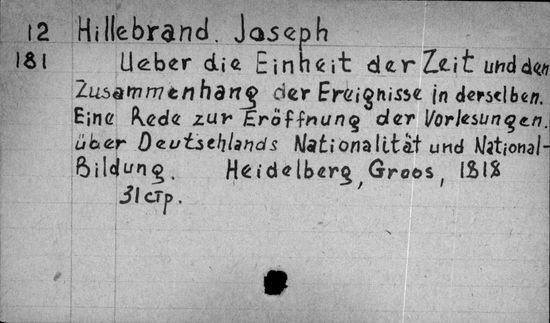 12 Hillebrand. Joseph
181 Ueber die Einheit der Zeit und den
Zusammenhang der Ereignisse in derselben.
Eine Rede zur Eröffnung der Vorlesungen.
über Deutschlands Nationalität und National-
Bildung. Heidelberg, Groos, 1818
31 стр.